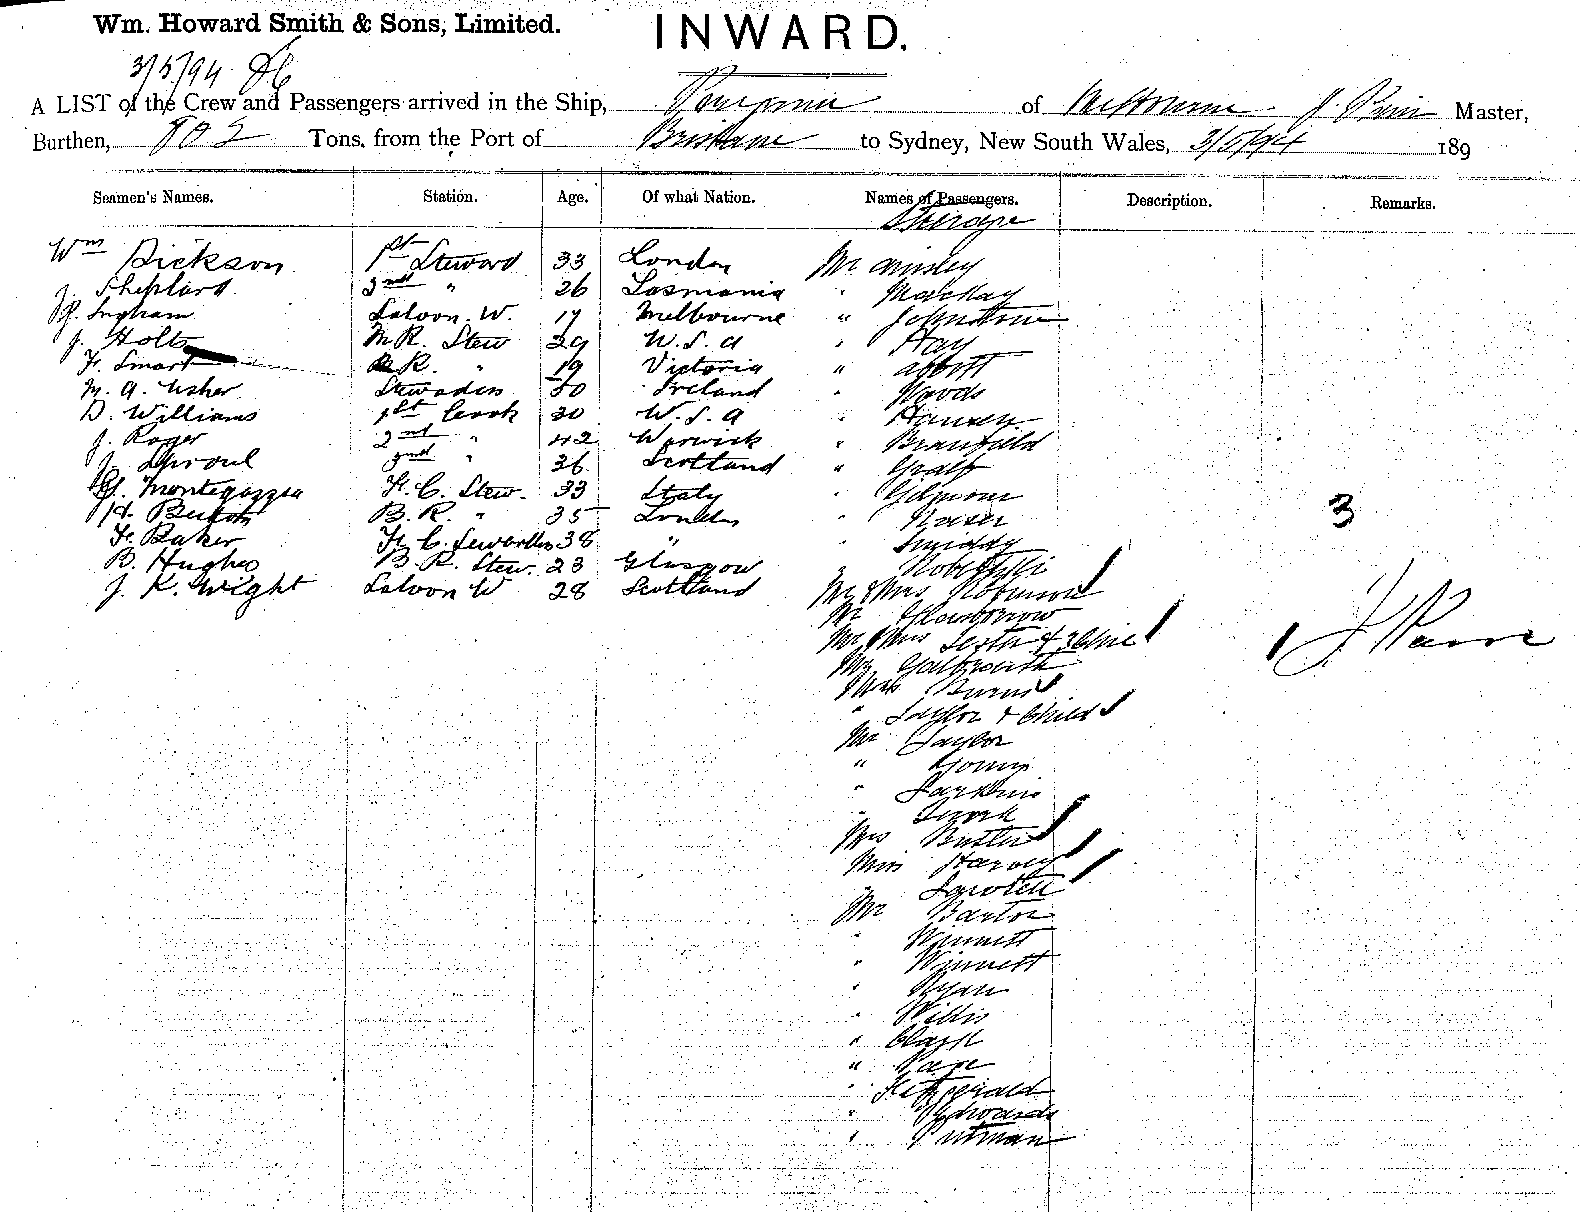 Wm. Howard Smith & Sons, Limited.
INWARD.
3/5/94
A LIST of the Crew and Passengers arrived in the Ship, of Melbourne J. Master,
Burthen, 802 Tons, from the Port of Brisbane to Sydney, New South Wales, 3/5/94 189
Seamen's Names. Station. Age. Of what Nation. Names of Passengers. Description. Remarks.
Steerage
Wm Dickson 1st Steward 33 London Mr Ainsley
J. Shephard 2nd " 26 Tasmania " Mackay
Ingham Saloon W. 19 Melbourne " Johnstone
J. Holts M R. Stew 29 U.S.A " Hay
F. Smart R. " 19 Victoria " Abbott
M. A. Usher Stewadess 50 Ireland " Woods
D. Williams 1st Cook 30 U.S.A " Hansen
J. Roger 2nd " 42 Warwick " Branfield
J. Sproul 3rd " 26 Scotland "
G. Montegazzia F. C. Stew. 33 Italy " Gilmour
H. B. R. " 35 London "
F. Baker F. C. Stewardess 38 " " Smiddy
B. Hughes B. R. Stew. 23 Glasgow "
J. K. Wight Saloon W 28 Scotland Mr & Mrs Robinson
Mr
Mr & Mrs Lester & 3 Chil
Mr Galbraith
Mrs Burns
" Taylor & Child
Mr Taylor
" Young
" Larkins
"
Mrs
Miss Harvey
"
Mr Barton
" Winnett
" Winnett
" Ryan
" Willis
" Clark
" Page
" Fitzgerald
" Edwards
" Putman
3